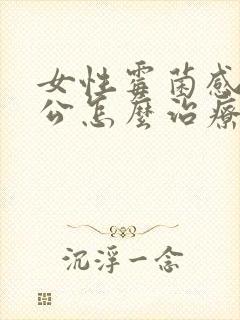 女性霉菌感
公怎麼治療
沉浮一念